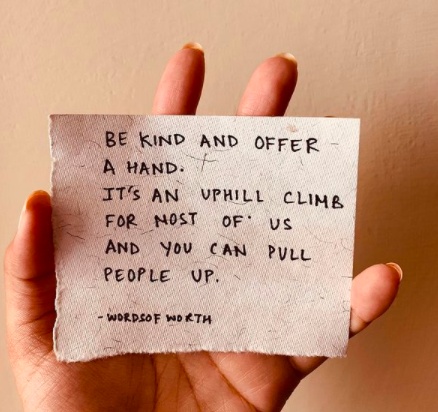 BE KIND AND OFFER
A HAND.
IT'S AN UPHILL CLIMB
FOR MOST OF US
AND YOU CAN PULL
PEOPLE UP.
-WORDSOF WORTH